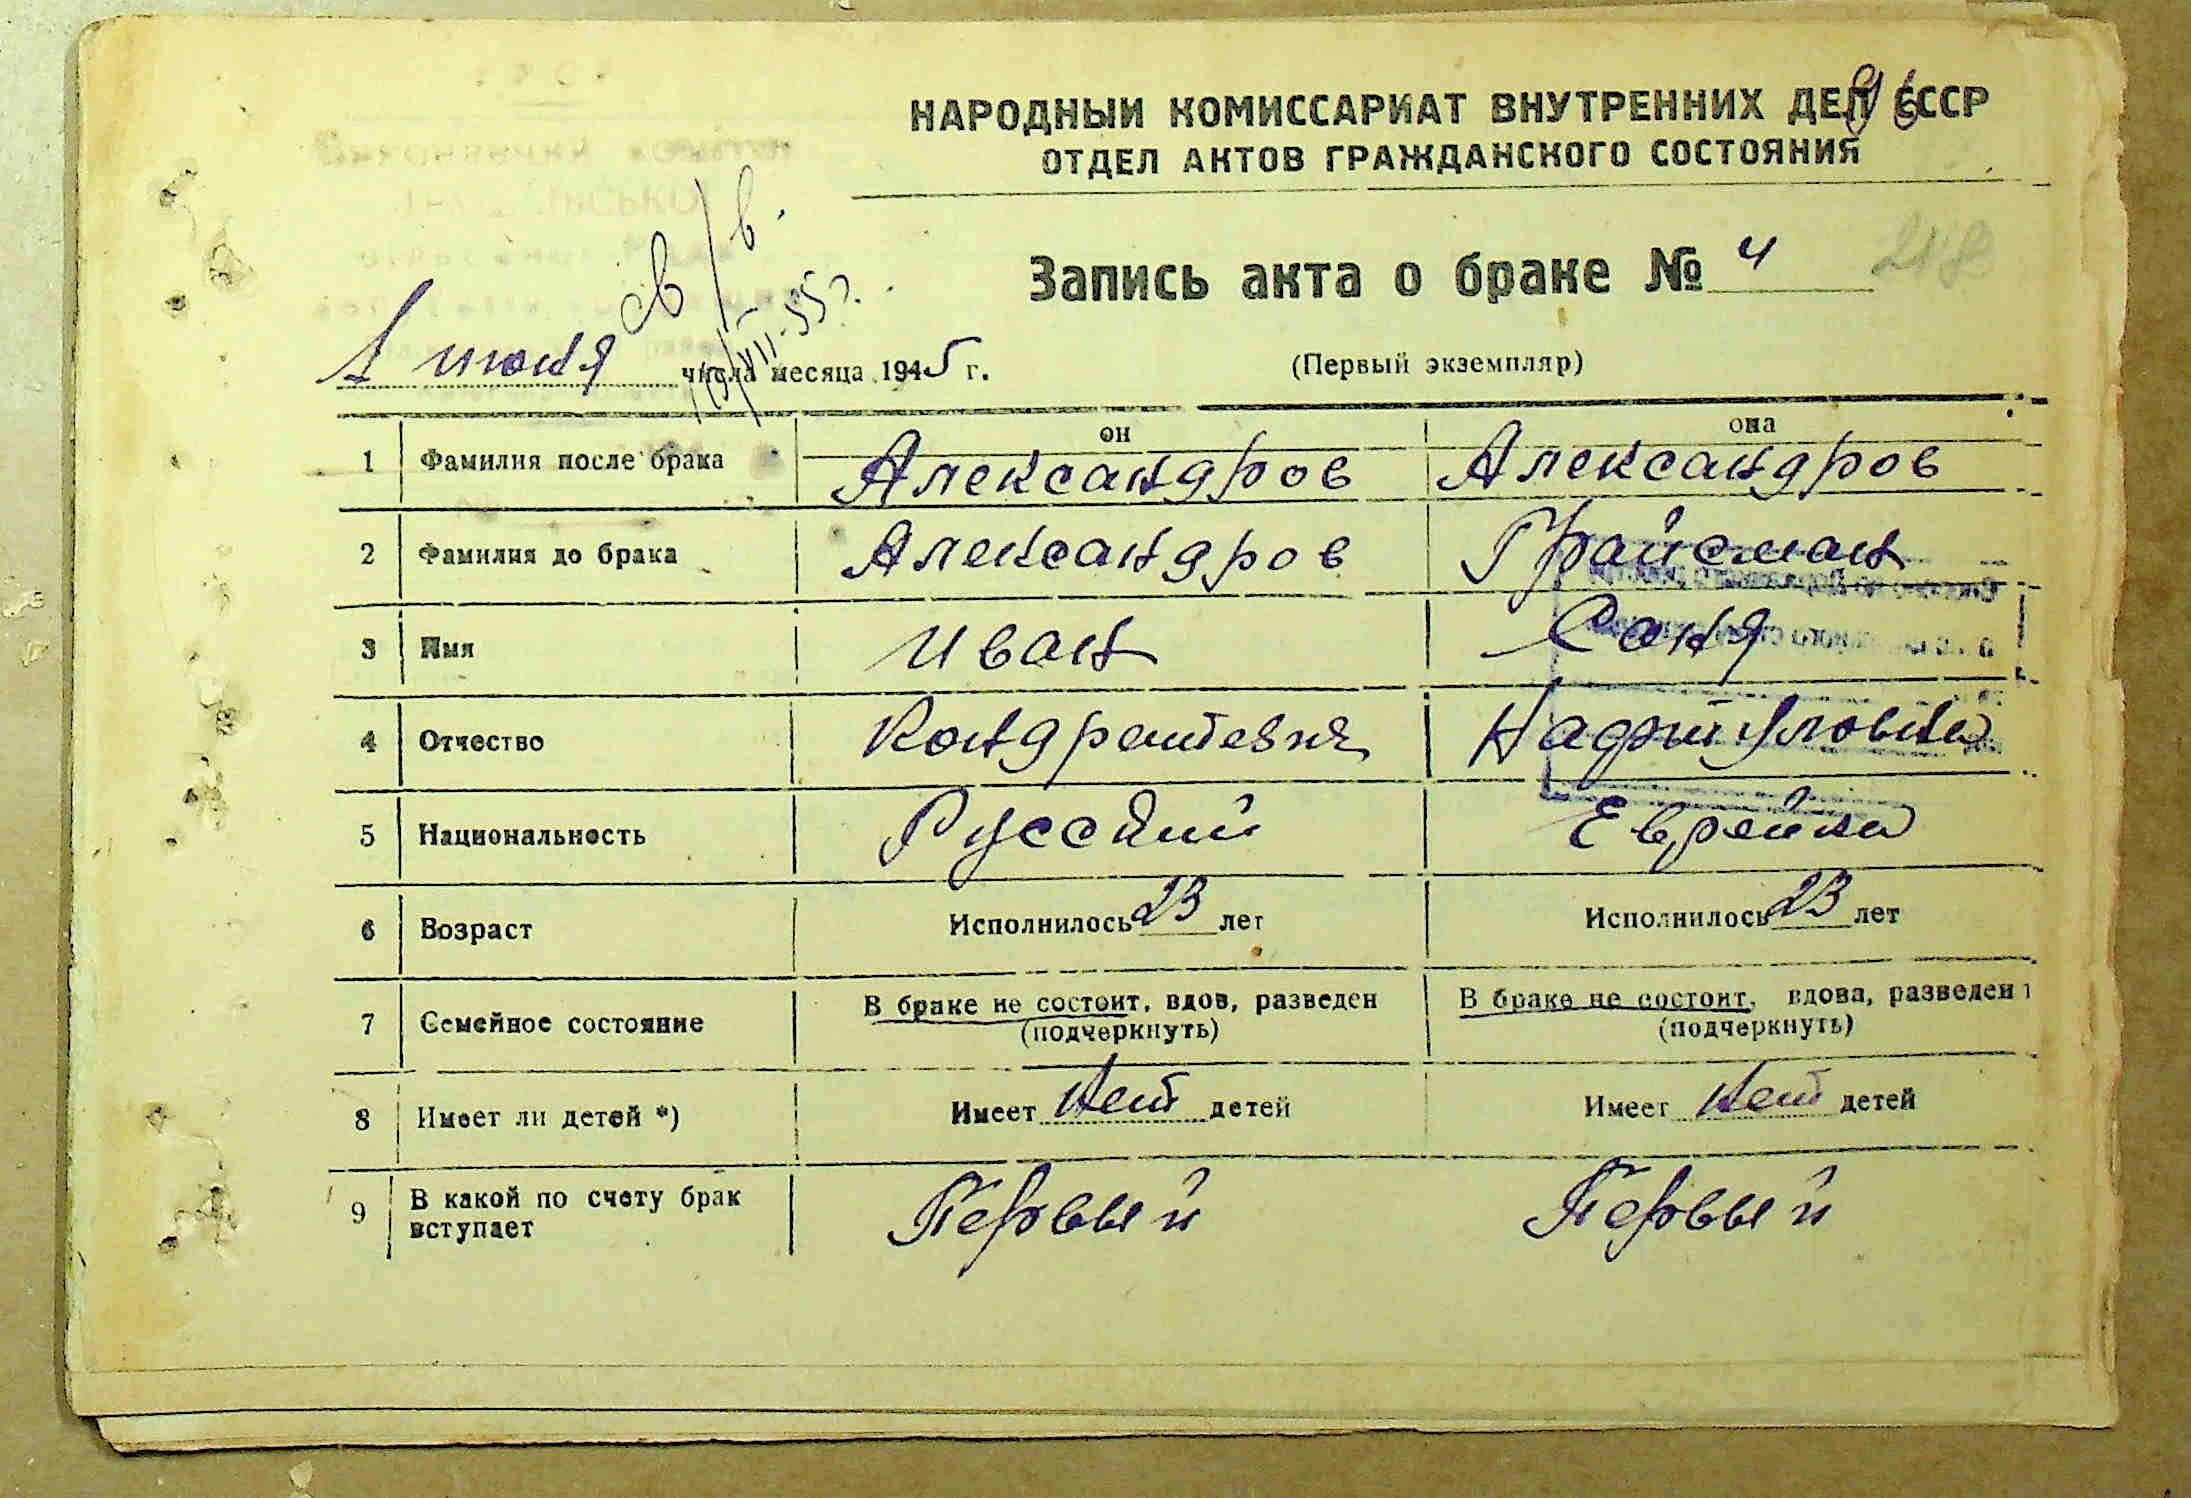 НАРОДНЫЙ КОМИССАРИАТ ВНУТРЕННИХ ДЕЛ СССР
ОТДЕЛ АКТОВ ГРАЖДАНСКОГО СОСТОЯНИЯ
Запись акта о браке № 4
числа месяца 1945 г.
(Первый экземпляр)
он она
1 Фамилия после брака Александров Александров
2 Фамилия до брака Александров Грайсман
3 Имя Иван Соня
4 Отчество
5 Национальность Русский Еврейка
6 Возраст Исполнилось 23 лет Исполнилось 23 лет
7 Семейное состояние В браке не состоит, вдов, разведен В браке не состоит, вдова, разведен
(подчеркнуть) (подчеркнуть)
8 Имеет ли детей *) Имеет нет детей Имеет нет детей
9 В какой по счету брак Первый Первый
вступает